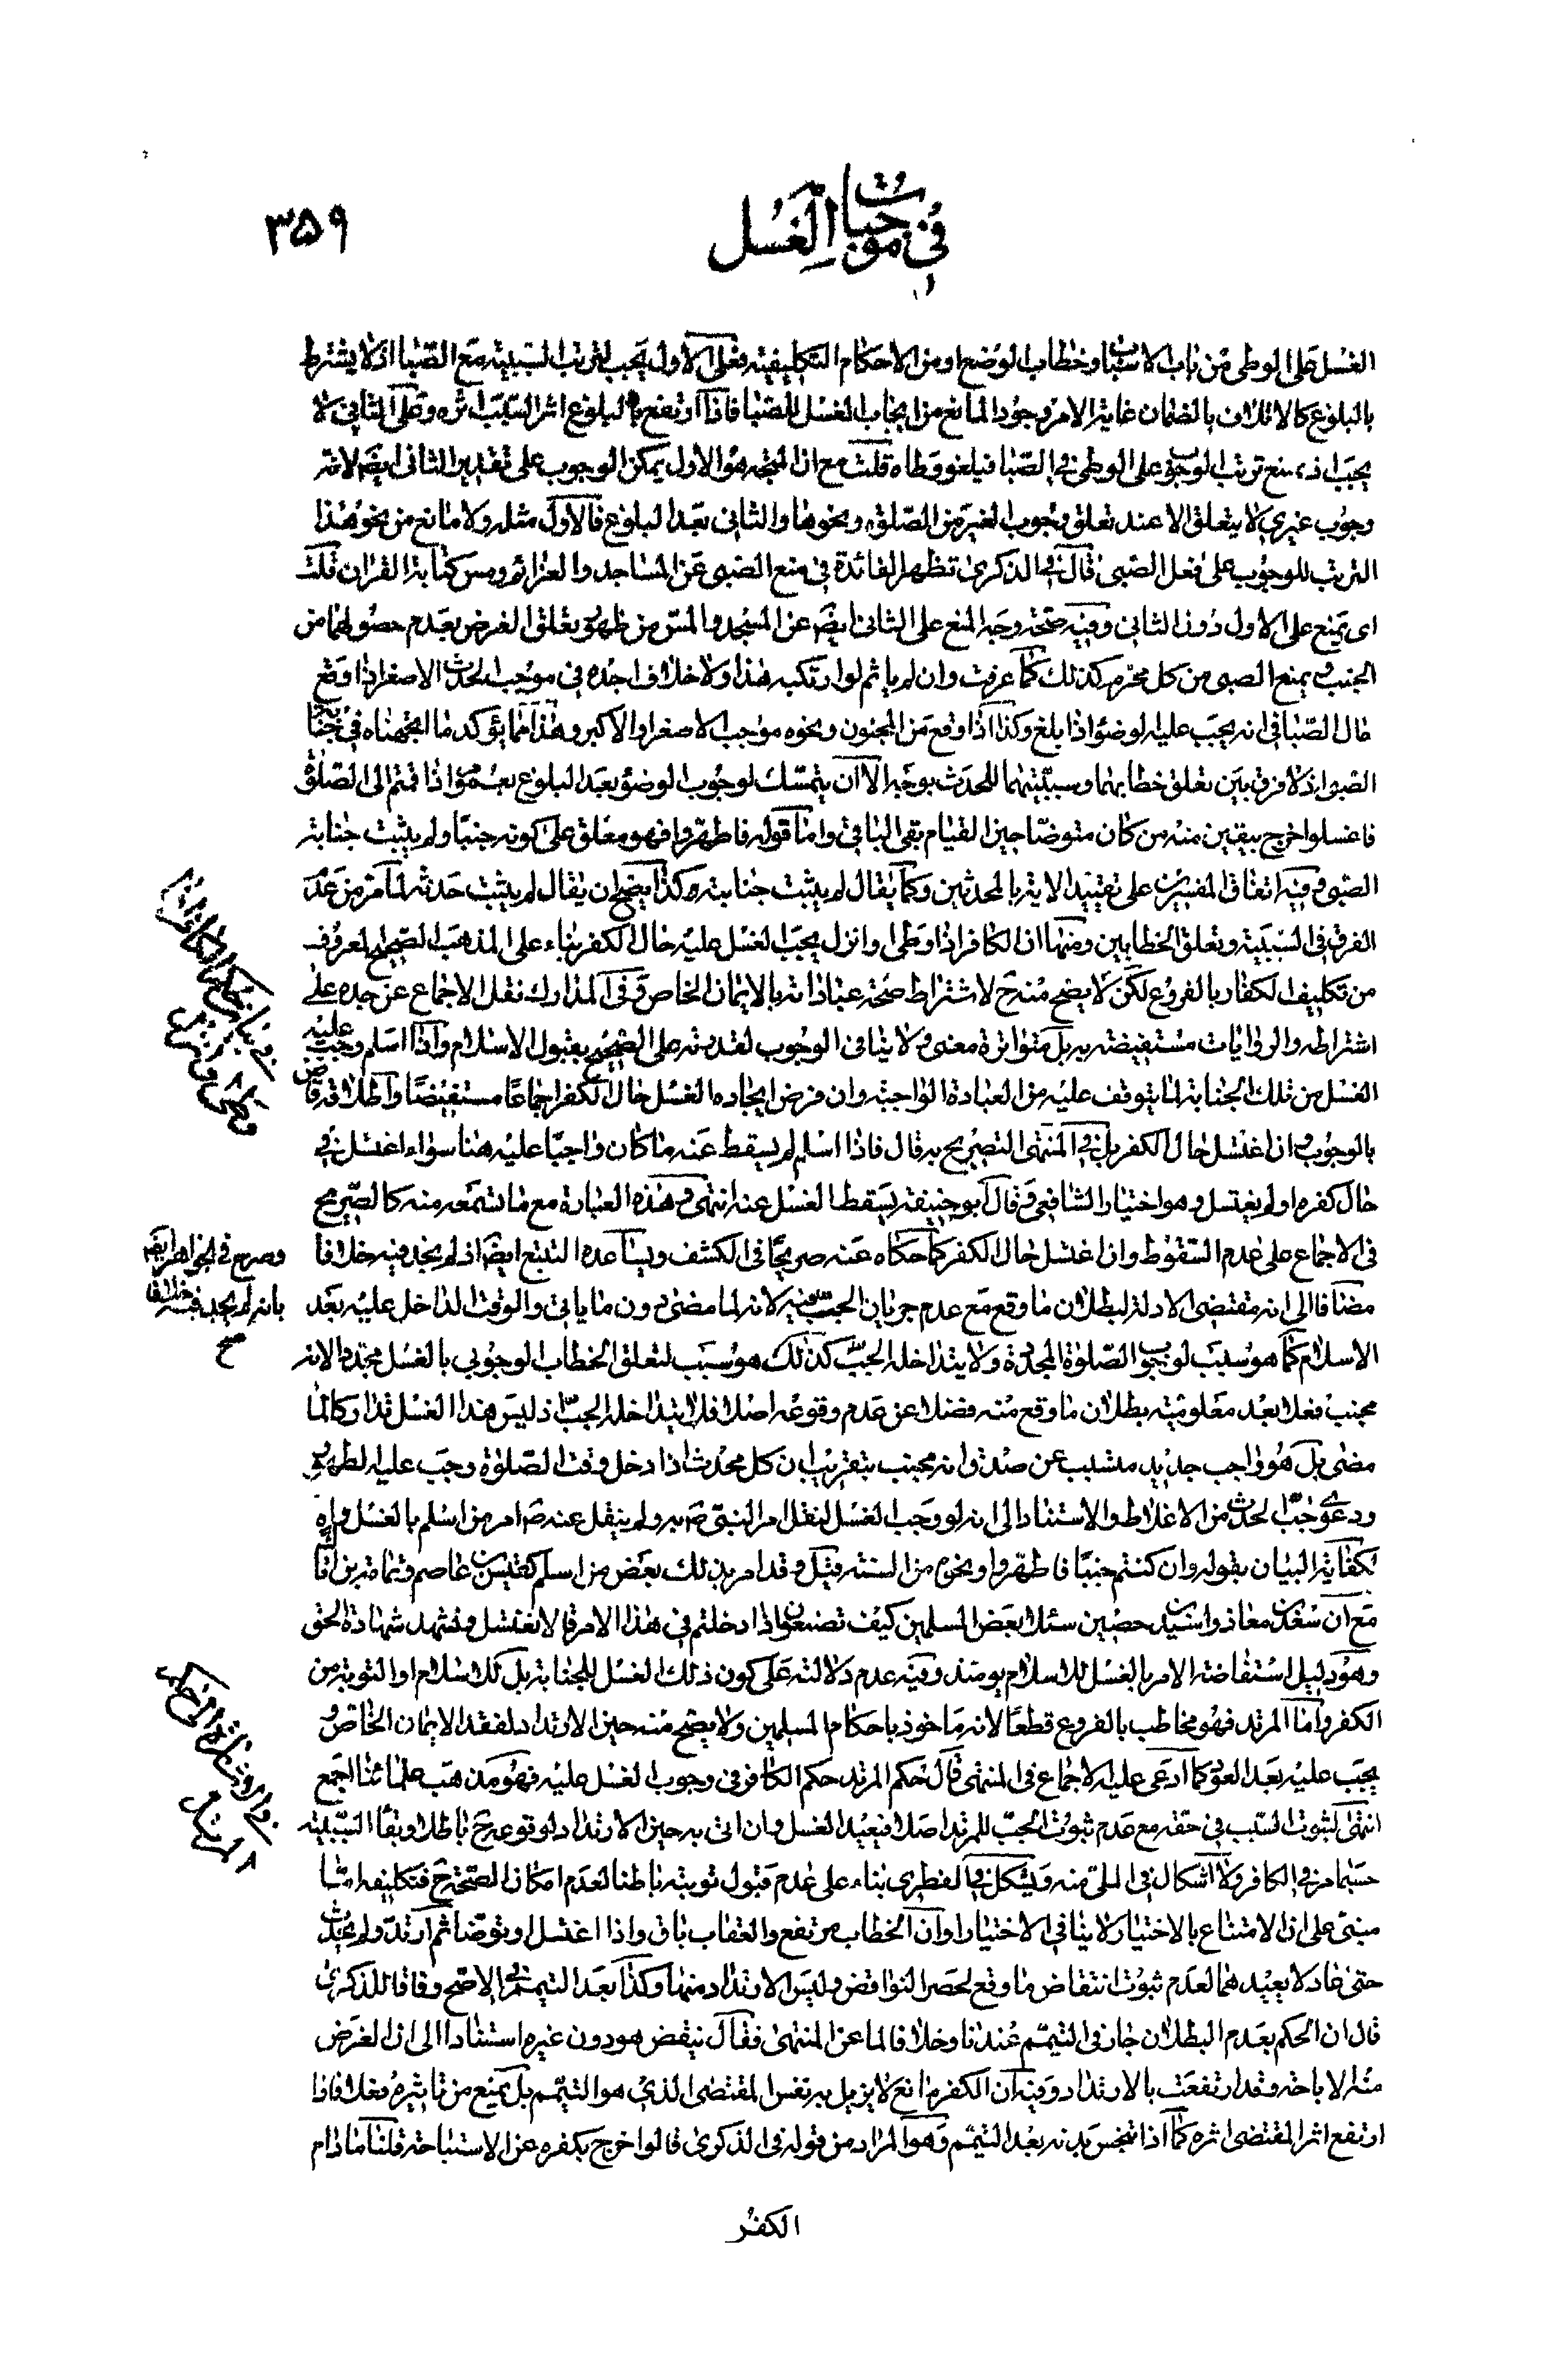 ٣٥٩
في موجبات الغسل
الغسل على الوطي من باب الاسباب وخطاب الوضع او من الاحكام التكليفية فعلى الاول يجب لترتب السببية مع الصبا اذ لا يشترط
بالبلوغ كالاتلاف بالضمان غاية الامر وجود المانع من ايجاب الغسل للصبا فاذا ارتفع بالبلوغ اثر السبب اثره وعلى الثاني لا
يجب اذ يمنع ترتب الوجوب على الوطي في الصبا فيلغو وطاه قلت مع ان المتجه هو الاول يمكن الوجوب على تقدير الثاني ايضا لانه
وجوب غيري لا يتعلق الا عند تعلق وجوب الغير من الصلوة ونحوها والثاني بعد البلوغ فالاول مثله ولا مانع من نحو هذا
الترتب للوجوب على فعل الصبي قال في الذكرى تظهر الفائدة في منع الصبي عن المساجد والعزائم ومس كتابة القران قلت
اى يمنع على الاول دون الثاني وفيه صحة وجه المنع على الثاني ايضا عن المسجد والمس من ظهور تعلق الغرض بعدم حصولهما من
الجنب و يمنع الصبي من كل محرم كذلك كما عرفت وان لم ياثم لو ارتكبه هذا ولا خلاف اجده في موجب الحدث الاصغر اذا وقع
حال الصبا في انه يجب عليه الوضوء اذا بلغ وكذا اذا وقع من المجنون ونحوه موجب الاصغر او الاكبر وهذا مما يؤكد ما اتجهناه في جنابة
الصبى اذ لا فرق بين تعلق خطابهما وسببيتهما للحدث بوجه الا ان يتمسك لوجوب الوضوء بعد البلوغ بعموم اذا قمتم الى الصلوة
فاغسلوا خرج بيقين منه من كان متوضا حين القيام بقى الباقي واما قوله فاطهروا فهو معلق على كونه جنبا ولم يثبت جنابة
الصبى وفيه اتفاق المفسرين على تقييد الاية بالمحدثين وكما يقال لم يثبت جنابته كذا يصح ان يقال لم يثبت حدثه لما مر من عدم
الفرق في السببية وتعلق الخطابين ومنها ان الكافر اذا وطى او انزل يجب الغسل عليه حال الكفر بناء على المذهب الصحيح المعروف
من تكليف الكفار بالفروع لكن لا يصح منه ح لاشتراط صحة عباداته بالايمان الخاص وفى المدارك نقل الاجماع عن جده على
اشتراطه والروايات مستفيضة به بل متواترة معنى ولا ينافى الوجوب لقدرته على الصحيح بقبول الاسلام واذا اسلم وجب عليه
الغسل من تلك الجنابة لما يتوقف عليه من العبادة الواجبة وان فرض ايجاده الغسل حال الكفر اجماعا مستفيضا واطلاقه قاض
بالوجوب ان اغتسل حال الكفر بل في المنتهى التصريح به قال فاذا اسلم لم يسقط عنه ما كان واجبا عليه هنا سواء اغتسل في
حال كفره او لم يغتسل وهو اختيار الشافعي وقال ابو حنيفة يسقط الغسل عنه انتهى وهذه العبارة مع ما تسمعه منه كالصريح
فى الاجماع على عدم السقوط وان اغتسل حال الكفر كما حكاه عنه صريحا فى الكشف ويساعده التتبع ايضا اذ لم يجد فيه خلافا
مضافا الى انه مقتضى الادلة لبطلان ما وقع مع عدم جريان الجب فيه لانه لما مضى دون ما ياتى والوقت الداخل عليه بعد
الاسلام كما هو سبب لوجوب الصلوة المجددة ولا يتداخله الجب كذلك هو سبب لتعلق الخطاب الوجوبي بالغسل مجددا لانه
مجنب فعلا بعد معلومية بطلان ما وقع منه فضلا عن عدم وقوعه اصلا فلا يتداخله الجب اذ ليس هذا الغسل تداركا لما
مضى بل هو واجب جديد متسبب عن صدق انه مجنب بتقريب ان كل محدث اذا دخل وقت الصلوة وجب عليه الطهور
ودعوى جب الحدث من الاغلاط والاستناد الى انه لو وجب الغسل لنقل امر النبي ص به ولم ينقل عنه ص امر من اسلم بالغسل واه
لكفاية البيان بقوله وان كنتم جنبا فاطهروا ونحوه من السنة قيل وقد امر بذلك بعض من اسلم كقيس بن عاصم وثمامة بن اثال
مع ان سعد بن معاذ واسيد بن حصين سئلا بعض المسلمين كيف تصنعون اذا دخلتم في هذا الامر قالا نغتسل ونشهد شهادة الحق
وهو دليل استفاضة الامر بالغسل للاسلام يومئذ وفيه عدم دلالته على كون ذلك الغسل للجنابة بل للاسلام او التوبة من
الكفر واما المرتد فهو مخاطب بالفروع قطعا لانه ماخوذ باحكام المسلمين ولا يصح منه حين الارتداد لفقد الايمان الخاص و
يجب عليه بعد العود كما ادعى عليه الاجماع فى المنتهى قال حكم المرتد حكم الكافر في وجوب الغسل عليه فهو مذهب علمائنا اجمع
انتهى لثبوت السبب في حقه مع عدم ثبوت الجب للمرتد اصلا فيعيد الغسل وان اتى به حين الارتداد لوقوعه ح باطلا وبقاء السببية
حسبما مر في الكافر ولا اشكال في الملي منه ويشكل في الفطري بناء على عدم قبول توبته باطنا لعدم امكان الصحة ح فتكليفه اما
مبني على ان الامتناع بالاختيار لا ينافي الاختيار او ان الخطاب مرتفع والعقاب باق واذا اغتسل او توضا ثم ارتد ولم يحدث
حتى عاد لا يعيدهما لعدم ثبوت انتقاض ما وقع لحصر النواقض وليس الارتداد منها وكذا بعد التيمم في الاصح وفاقا للذكرى
قال ان الحكم بعدم البطلان جار فى التيمم عندنا وخلافا لما عن المنتهى فقال ينقض هو دون غيره استنادا الى ان الغرض
منه الاباحة وقد ارتفعت بالارتداد وفيه ان الكفر مانع لا يزيل به نفس المقتضى الذي هو التيمم بل يمنع من تاثيره فعلا فاذا
ارتفع اثر المقتضى اثره كما اذا تنجس بدنه بعد التيمم وهو المراد من قوله فى الذكرى قالوا خرج بكفره عن الاستباحة قلنا ما دام
وصرح في الجواهر ايضا
بانه لم يجد فيه خلافا
صح
الكفر